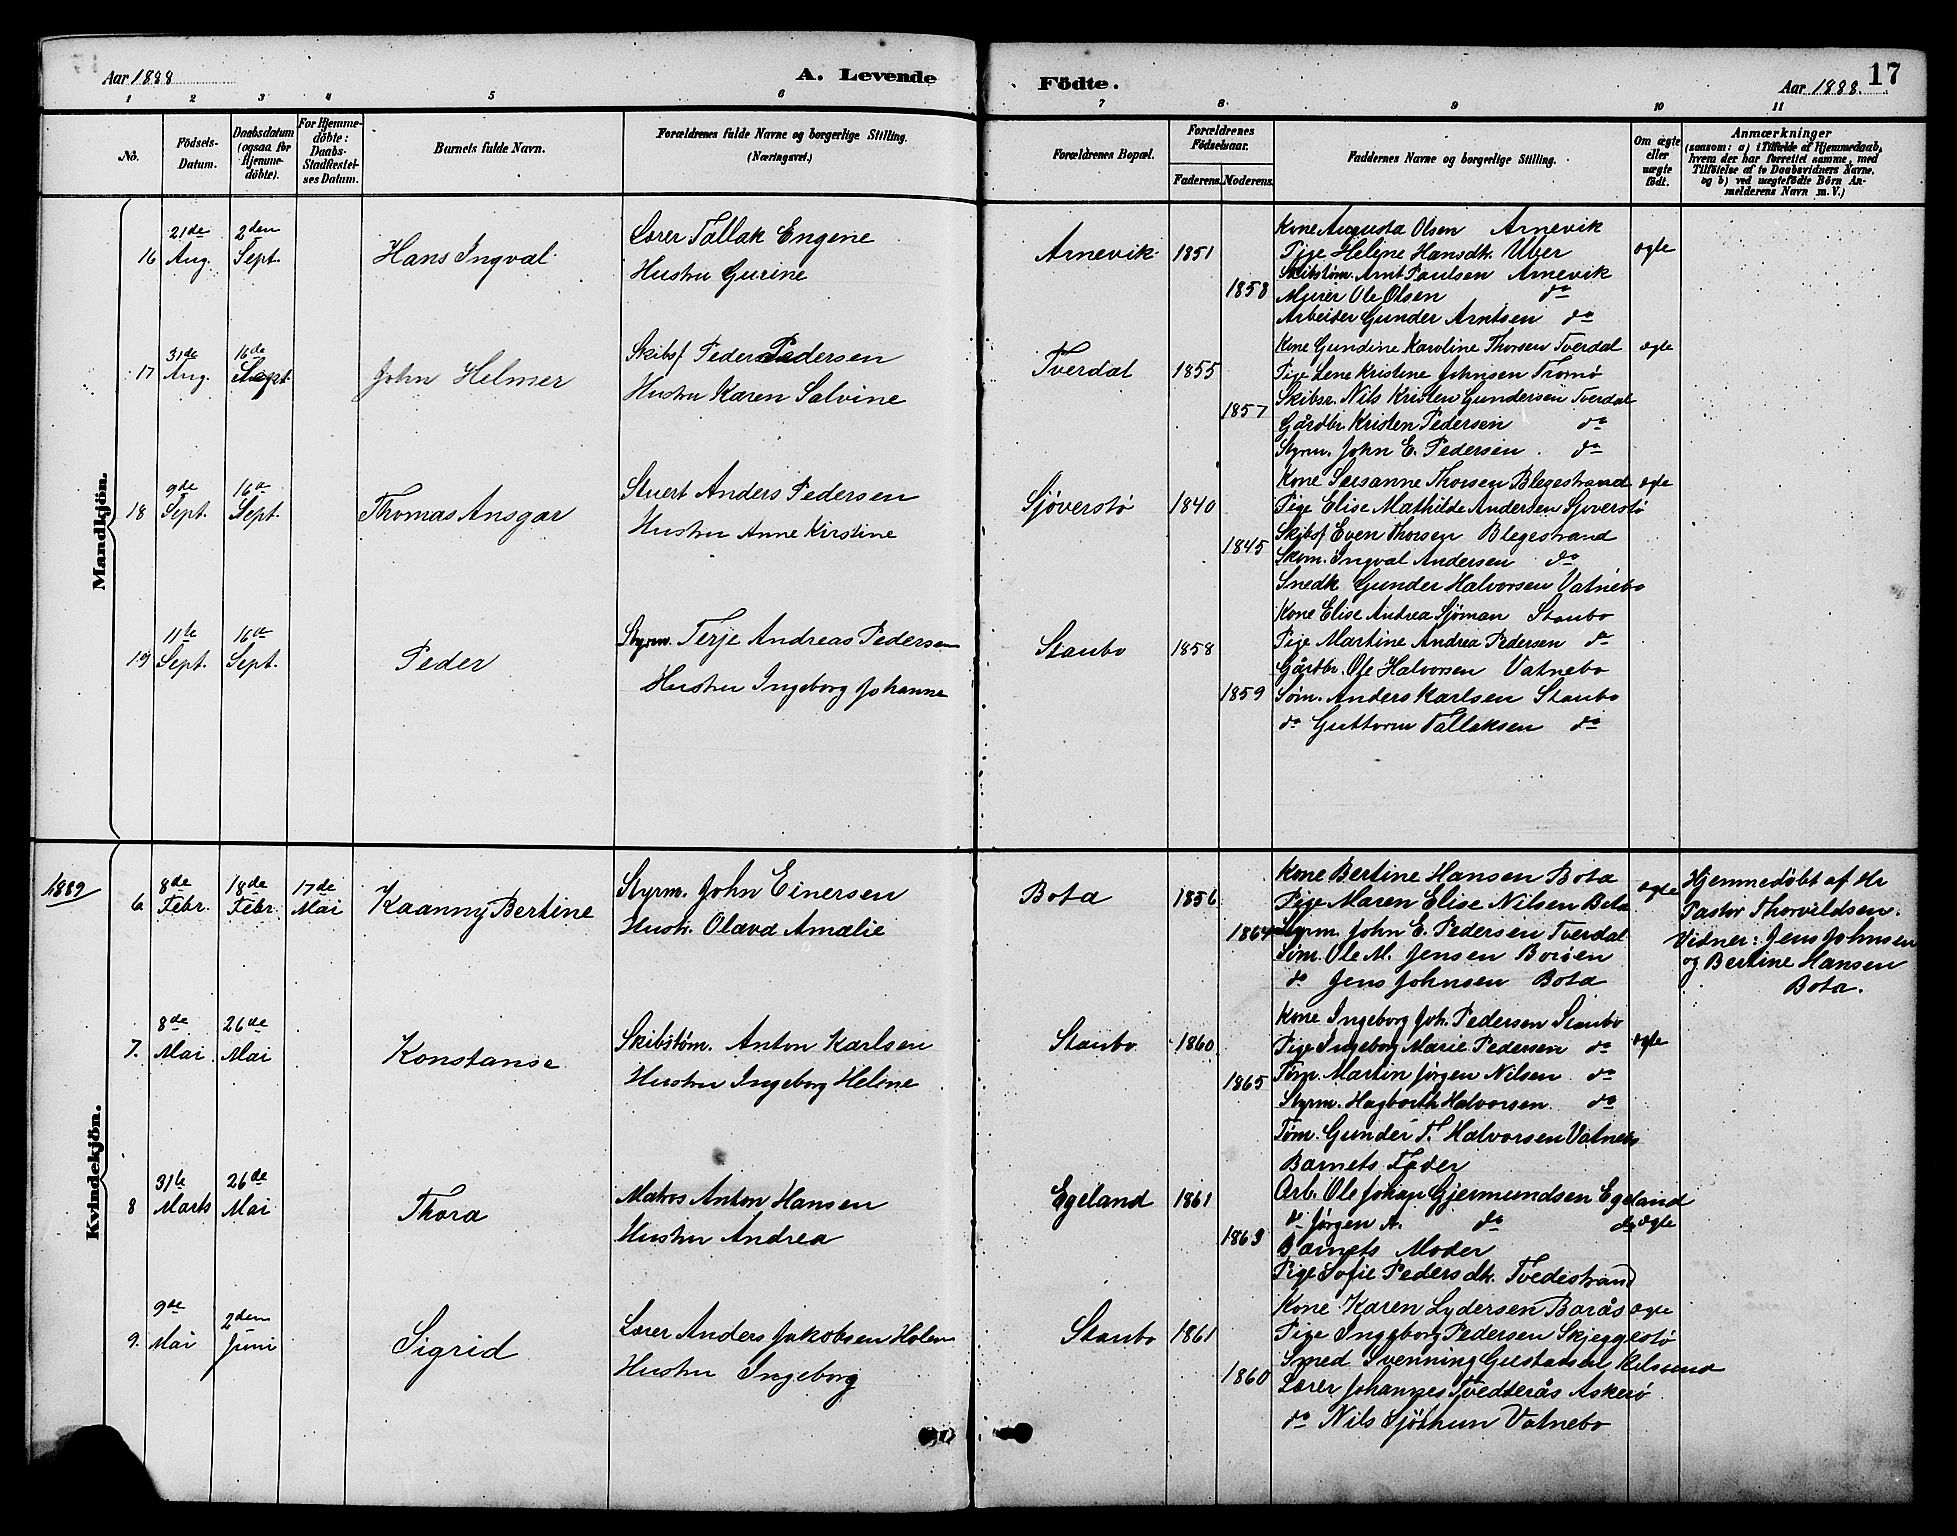 Aar 1888
A. Levende
Födte.
Aar 1888.
17
1 2 3 4 5 6 7 8. 9 10 11
No.
Födsels-
Datum.
Daabsdatum
(ogsaa for
Hjemme-
döbte).
For Hjemme-
döbte:
Daabs-
Stadfæstel-
ses Datum.
Barnets fulde Navn.
Forældrenes fulde Navne og borgerlige Stilling.
(Næringsvei.)
Forældrenes Bopæl.
Forældrenes
Födselsaar.
Faderens. Moderens.
Faddernes Navne og borgerlige Stilling.
Om ægte
eller
uægte
födt.
Anmærkninger
(saasom: a) i Tilfælde af Hjemmedaab,
hvem der har forrettet samme, med
Tilföielse af to Daabsvidners Navne,
og b) ved uægtefödte Börn An-
melderens Navn m. V.)
Mandkjön.
16
21de
Aug.
2den
Sept.
Hans Ingval
Lærer Tallak Engene
Hustru Gurine
Arnevik
1851
1858
Kone Augusta Olsen Arnevik
Pige Helene Hansdtr. Uber
Skibstøm. Arnt Paulsen Arnevik
Murer Ole Olsen do
Arbeider Gunder Arntsen do
ægte
17
31de
Aug.
16de
Sept.
John Helmer
Skibsf. Peder Pedersen
Hustru Karen Salvine
Tverdal
1855
1857
Kone Gundine Karoline Thorsen Tverdal
Pige Lene Kristine Johnsen Tromø
Skibsr. Nils Kristen Gundersen Tverdal
Gårdbr. Kristen Pedersen do
Styrm. John E. Pedersen do
ægte
18
9de
Sept.
16de
Sept.
Thomas Ansgar
Stuert Anders Pedersen
Hustru Anne Kirstine
Sjöverstø
1840
1845
Kone Sersanne Thorsen Blegestrand
Pige Elise Mathilde Andersen Sjoverstø
Skibsf. Even Thorsen Blegestrand
Skom. Ingval Andersen do
Snedk. Gunder Halvorsen Vatnebo
ægte
19
11te
Sept.
16de
Sept.
Peder
Styrm. Terje Andreas Pedersen
Hustru Ingeborg Johanne
Staubo
1858
1859
Kone Elise Andrea Sjöman Staubo
Pige Martine Andrea Pedersen do
Gårdbr. Ole Halvorsen Vatnebo
Søm. Anders Karlsen Staubo
do Guttorm Tallaksen do
1889
Kvindekjön.
6
8de
Febr.
18de
Febr.
17de
Mai
Kaanny Bertine
Styrm. John Einersen
Hustr. Olava Amalie
Bota
1856
1864
Kone Bertine Hansen Bota
Pige Maren Elise Nilsen Bota
Styrm. John E. Pedersen Tverdal
Tøm. Ole M. Jensen Borøen
do Jens Johnsen Bota
ægte
Hjemmedøbt af Hr
Pastor Thorvildsen.
Vidner: Jens Johnsen
og Bertine Hansen
Bota.
7.
8de
Mai
26de
Mai
Konstanse
Skibstøm. Anton Karlsen
Hustru Ingeborg Helene
Staubo
1860
1865
Kone Ingeborg Joh. Pedersen Staubo
Pige Ingeborg Marie Pedersen do
Tøm. Martin Jørgen Nilsen do
Styrm. Hagbarth Halvorsen do
Tøm. Gunder T. Halvorsen Vatnebo
ægte
8
31te
Marts
26de
Mai
Thora
Matros Anton Hansen
Hustru Andrea
Egeland
1861
1863
Barnets Fader
Arb. Ole Johan Gjermundsen Egeland
do Jørgen A. do do
Barnets Moder
Pige Sofie Pedersdtr. Tvedestrand
ægte
9.
9de
Mai
2den
Juni
Sigrid
Lærer Anders Jakobsen Holen
Hustru Ingeborg
Staubo
1861
1860
Kone Karen Lydersen Borås
Pige Ingeborg Pedersen Skjeggestø
Smed Svenning Gustadsen Kilsund
Lærer Johannes Tvedterås Askerø
do Nils Sjöthun Vatnebo
ægte